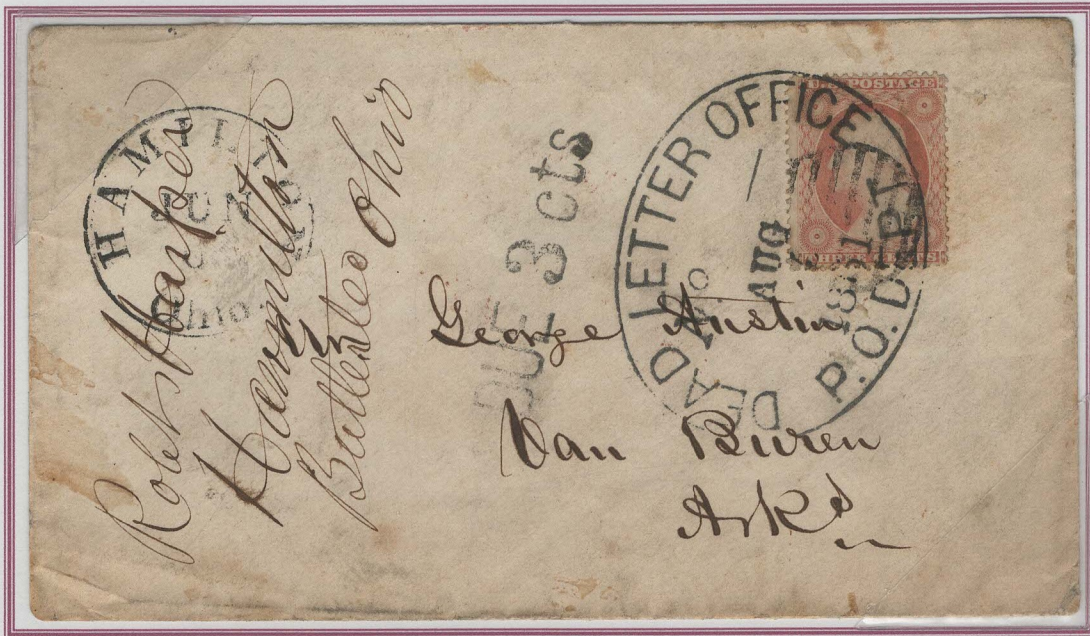 HAMILTON
JUN
Ohio
Robt Harper
Hamilton
Butler Co Ohio
DUE 3 cts
DEAD LETTER OFFICE
P.O.DEPT.
AUG
1861
No
U.S. POSTAGE
THREE CENTS
George Austin
Van Buren
Arks